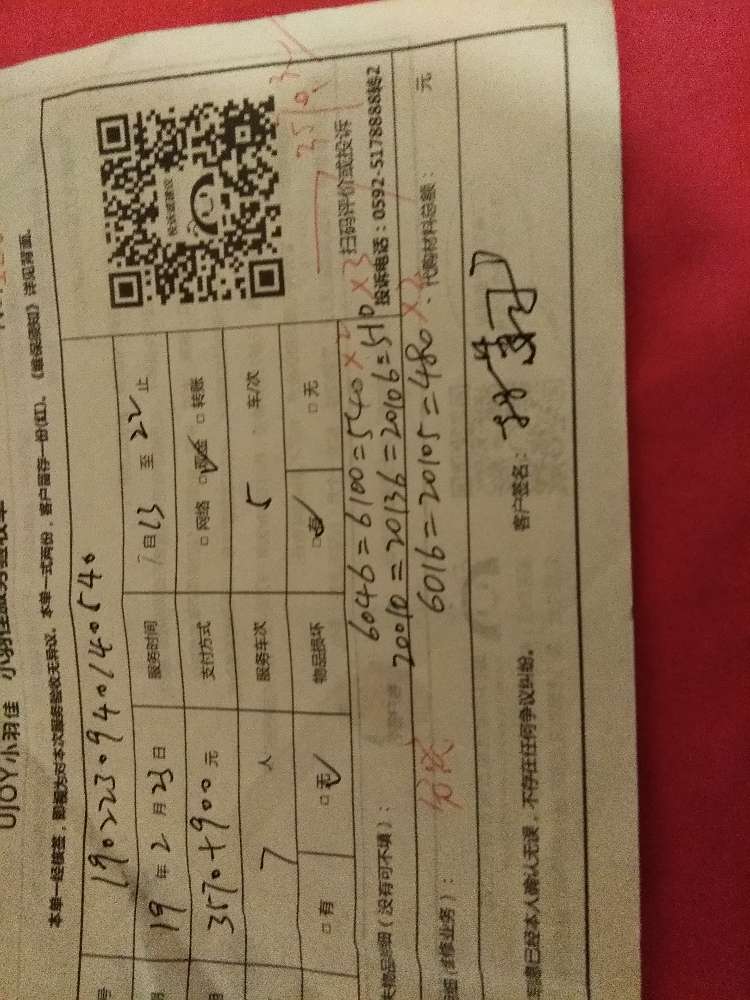 UJOY小羽佳 小羽佳服务验收单
本单一经核签，即视为对本次服务验收无异议。本单一式两份，客户留存一份(红)。《维保须知》详见背面。
号 1902230940140540
19 年 2 月 23 日 服务时间 日 13 至 22 止
3570+900 元 支付方式 □ 网络 □ 现金 □ 转账
7 人 服务车次 5 车/次
□ 有 □ 无 物品损坏 □ 有 □ 无
投诉或建议
扫码评价或投诉
投诉电话：0592-5178888转2
3570
失物品明细（没有可不填）：
6046=6100=540×
20010=20136=20106=510×3
6016=20105=480×
细(维修业务)：
代购材料总额： 元
客户签名：
信息已经本人确认无误，不存在任何争议纠纷。